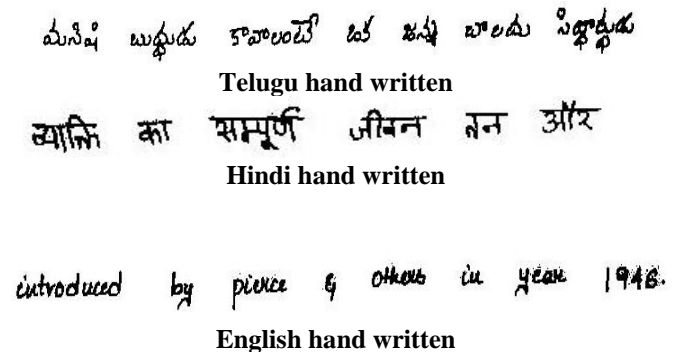 మనిషి బుద్ధుడు కావాలంటే ఒక జన్మ చాలదు సిద్ధార్థుడు
Telugu hand written
व्यक्ति का सम्पूर्ण जीवन तन और
Hindi hand written
introduced by pierce & others in year 1946.
English hand written